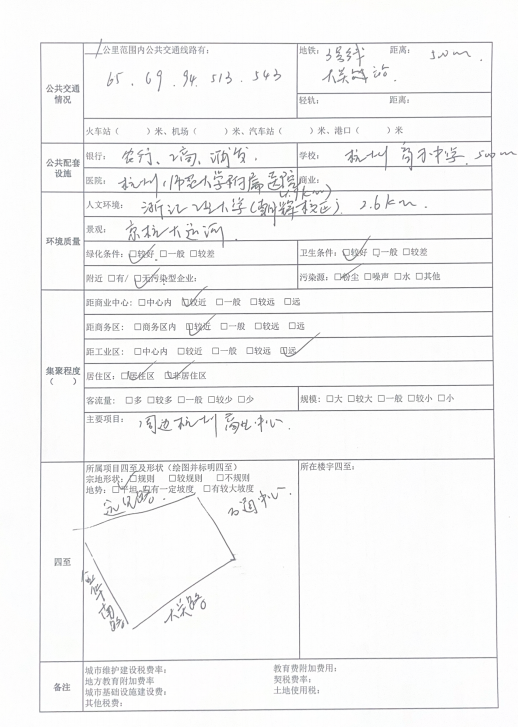 1公里范围内公共交通线路有:
65. 69. 94. 513. 543
地铁: 3号线 距离: 500m.
大关站.
公共交通
情况
轻轨: 距离:
火车站( )米、机场( )米、汽车站( )米、港口( )米
公共配套
设施
银行: 农行、工商、浦发.
学校: 杭州 中学. 500m
医院: 杭州师范大学附属医院
商业:
人文环境: 浙江工业大学(朝晖校区). 2.6km.
环境质量
景观: 京杭大运河
绿化条件: □较好 □一般 □较差
卫生条件: □较好 □一般 □较差
附近 □有/ □无污染型企业:
污染源: □粉尘 □噪声 □水 □其他
集聚程度
( )
距商业中心: □中心内 □较近 □一般 □较远 □远
距商务区: □商务区内 □较近 □一般 □较远 □远
距工业区: □中心内 □较近 □一般 □较远 □远
居住区: □居住区 □非居住区
客流量: □多 □较多 □一般 □较少 □少
规模: □大 □较大 □一般 □较小 □小
主要项目: 周边杭州 中心.
四至
所属项目四至及形状(绘图并标明四至)
宗地形状: □规则 □较规则 □不规则
地势: □平坦 □有一定坡度 □有较大坡度
所在楼宇四至:
中心.
金华南路
大关路
备注
城市维护建设税费率:
教育费附加费用:
地方教育附加费率
契税费率:
城市基础设施建设费:
土地使用税:
其他税费: